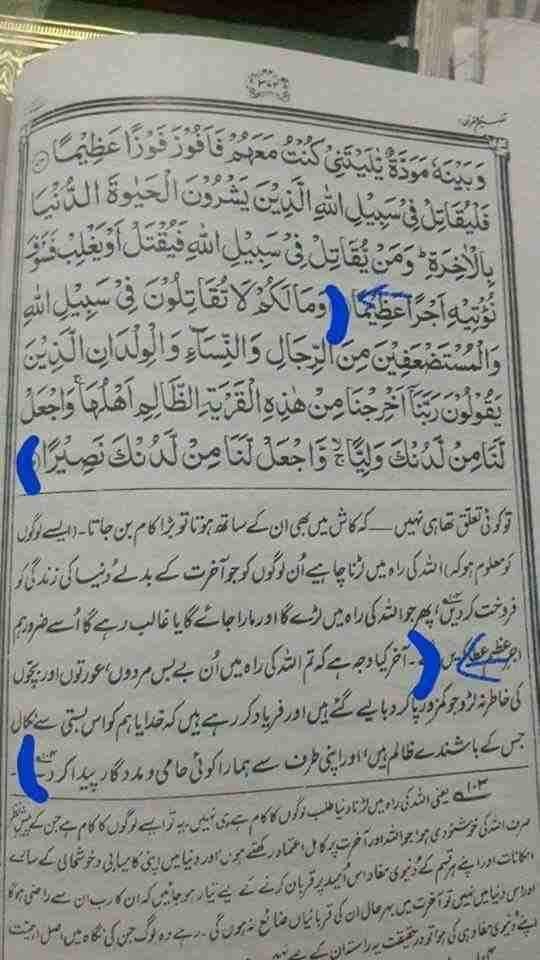 ۳۷۲
وَبَيْنَهٗ مَوَدَّةٌ يّٰلَيْتَنِيْ كُنْتُ مَعَهُمْ فَاَفُوْزَ فَوْزًا عَظِيْمًا
فَلْيُقَاتِلْ فِيْ سَبِيْلِ اللّٰهِ الَّذِيْنَ يَشْرُوْنَ الْحَيٰوةَ الدُّنْيَا
بِالْاٰخِرَةِ ؕ وَمَنْ يُّقَاتِلْ فِيْ سَبِيْلِ اللّٰهِ فَيُقْتَلْ اَوْ يَغْلِبْ فَسَوْفَ
نُؤْتِيْهِ اَجْرًا عَظِيْمًا وَمَا لَكُمْ لَا تُقَاتِلُوْنَ فِيْ سَبِيْلِ اللّٰهِ
وَالْمُسْتَضْعَفِيْنَ مِنَ الرِّجَالِ وَالنِّسَآءِ وَالْوِلْدَانِ الَّذِيْنَ
يَقُوْلُوْنَ رَبَّنَآ اَخْرِجْنَا مِنْ هٰذِهِ الْقَرْيَةِ الظَّالِمِ اَهْلُهَا ۚ وَاجْعَلْ
لَّنَا مِنْ لَّدُنْكَ وَلِيًّا ۙ وَّاجْعَلْ لَّنَا مِنْ لَّدُنْكَ نَصِيْرًا
تو کوئی تعلق تھا ہی نہیں — کہ کاش میں بھی ان کے ساتھ ہوتا تو بڑا کام بن جاتا۔ (ایسے لوگوں
کو معلوم ہو کہ) اللہ کی راہ میں لڑنا چاہیے اُن لوگوں کو جو آخرت کے بدلے دُنیا کی زندگی کو
فروخت کر دیں، پھر جو اللہ کی راہ میں لڑے گا اور مارا جائے گا یا غالب رہے گا اُسے ضرور ہم
اجر عظیم عطا کریں گے۔ آخر کیا وجہ ہے کہ تم اللہ کی راہ میں اُن بے بس مردوں، عورتوں اور بچّوں
کی خاطر نہ لڑو جو کمزور پا کر دبا لیے گئے ہیں اور فریاد کر رہے ہیں کہ خدایا ہم کو اس بستی سے نکال
جس کے باشندے ظالم ہیں، اور اپنی طرف سے ہمارا کوئی حامی و مددگار پیدا کر دے
۱۰۳ یعنی اللہ کی راہ میں لڑنا دنیا طلب لوگوں کا کام ہے ہی نہیں۔ یہ تو ایسے لوگوں کا کام ہے جن کے پیش نظر
صرف اللہ کی خوشنودی ہو، جو اللہ اور آخرت پر کامل اعتماد رکھتے ہوں، اور دنیا میں اپنی کامیابی و خوشحالی کے سارے
امکانات اور اپنے ہر قسم کے دُنیوی مفاد اس اُمید پر قربان کرنے کے لیے تیار ہو جائیں کہ ان کا رب ان سے راضی ہوگا
اور اس دنیا میں نہیں تو آخرت میں بہر حال ان کی قربانیاں ضائع نہ ہوں گی۔ رہے وہ لوگ جن کی نگاہ میں اصل اہمیت
اپنے دُنیوی مفاد ہی کی ہو، تو درحقیقت یہ راستہ ان کے لیے نہیں